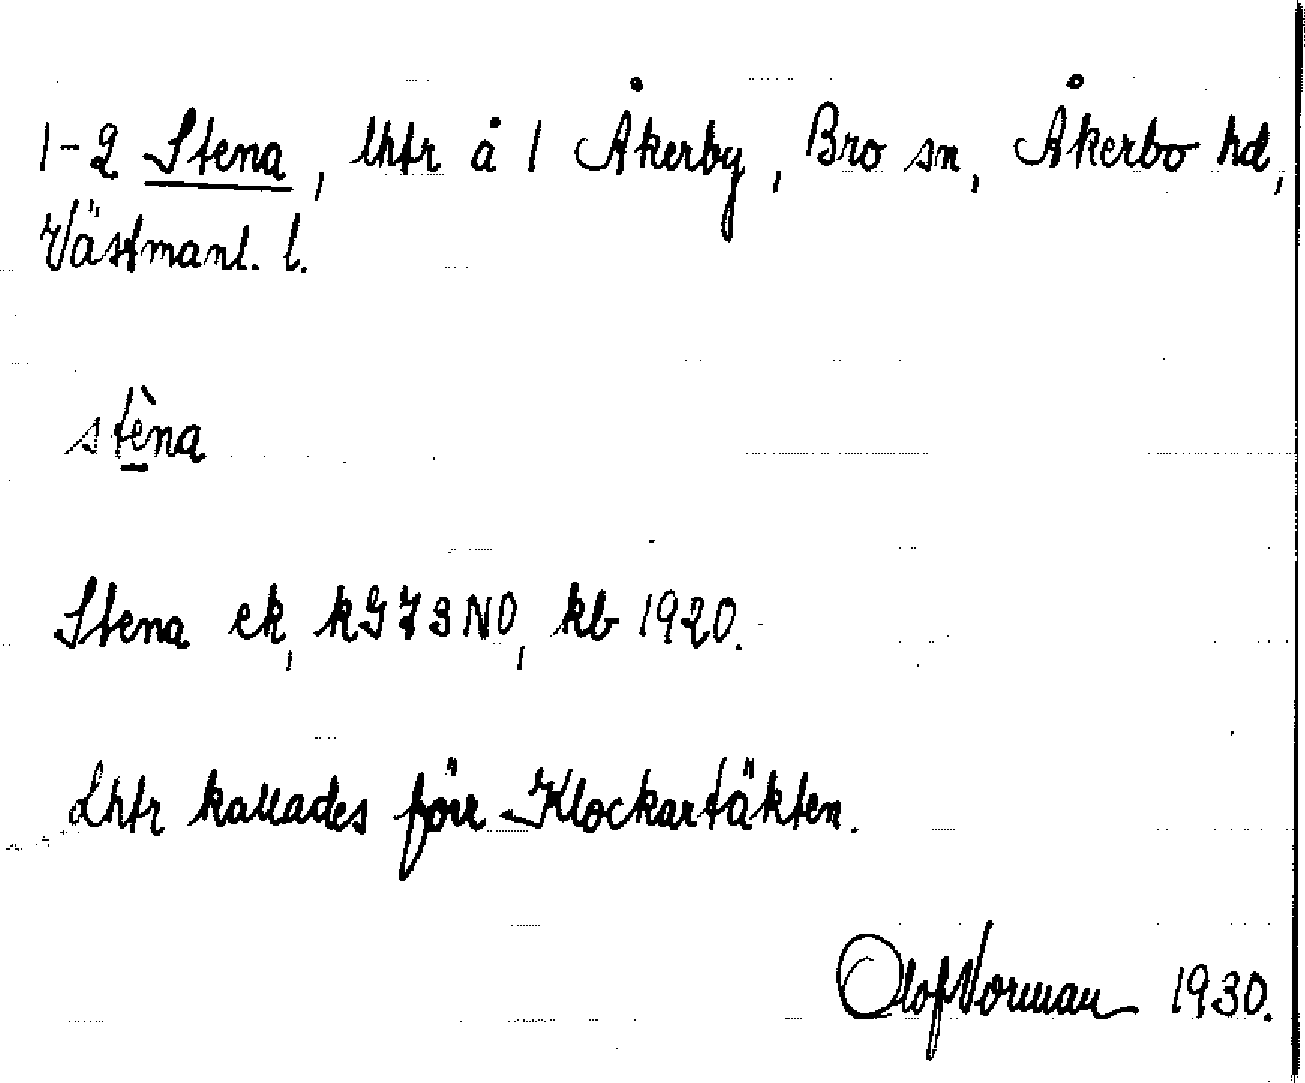 1-2 Stena, lhtr å 1 Åkerby, Bro sn, Åkerbo hd,
Västmanl. l.
stèna
Stena ek, kGZ3NO, kb 1920.
Lhtr kallades förr Klockartäkten.
Olof Norman 1930.